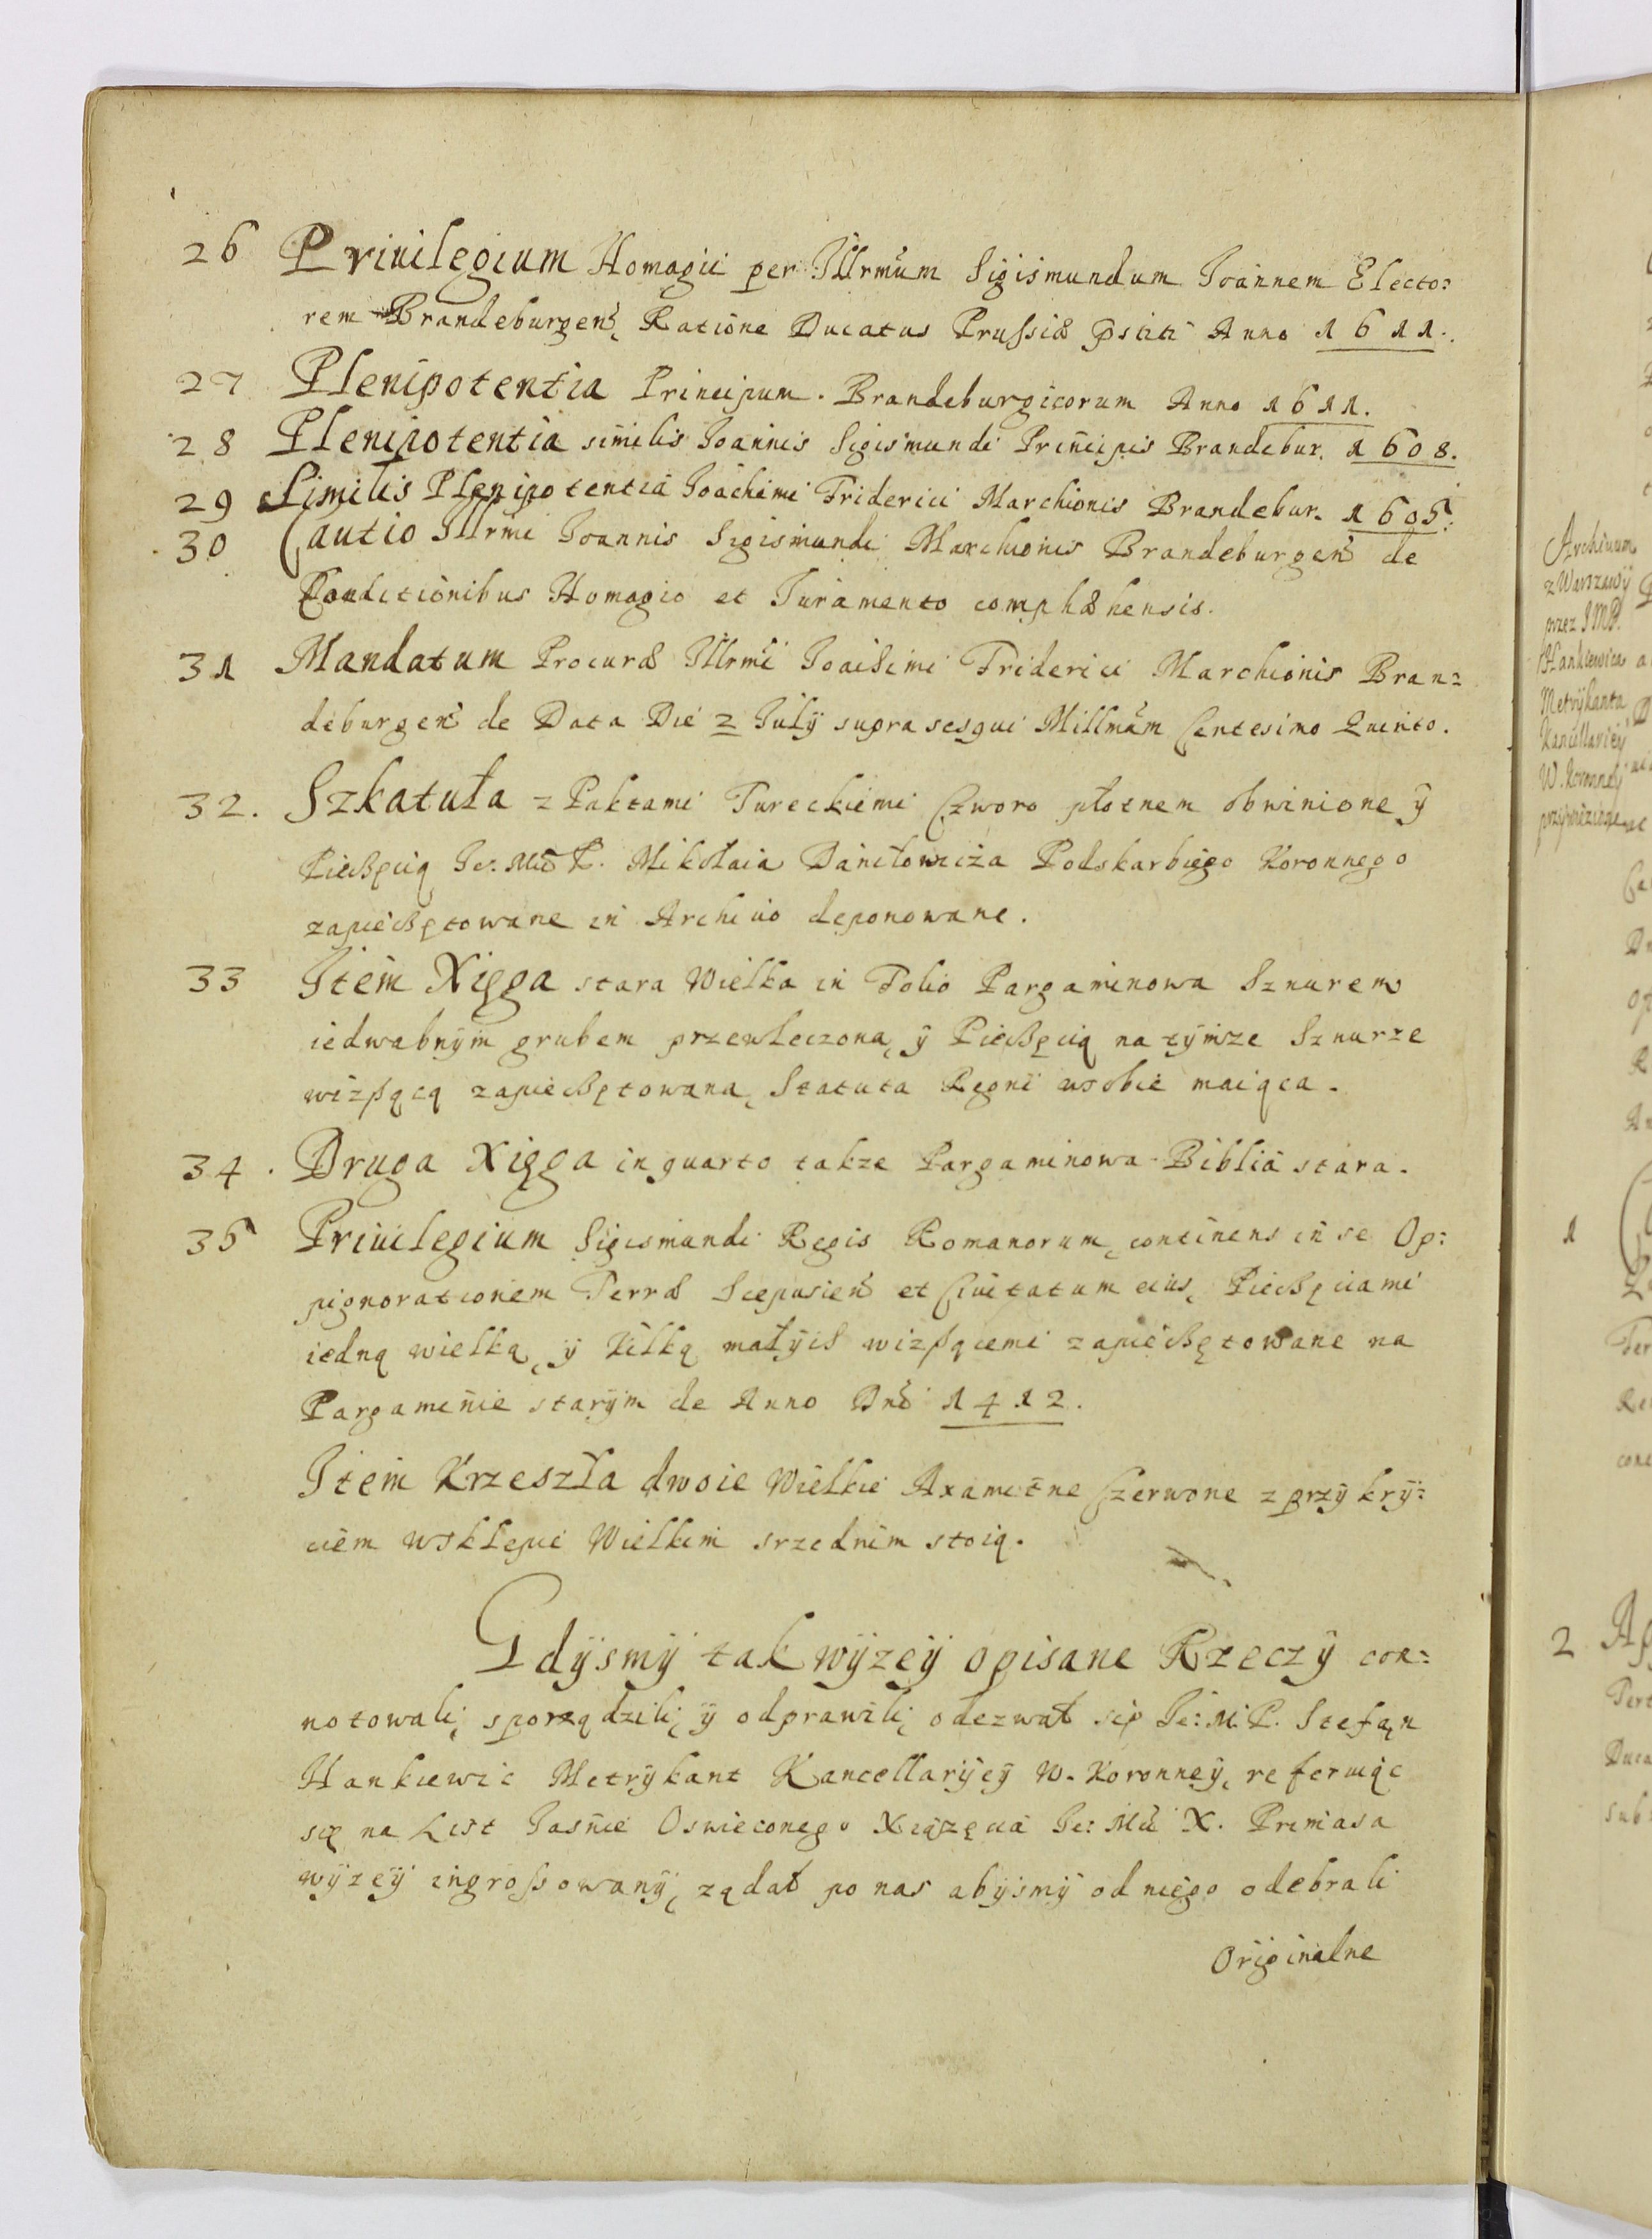 26 Priuilegium Homagii per Illrmum Sigismundum Joannem Electo:
rem Brandeburgens, Ratione Ducatus Prussiæ pstiti Anno 1611.
27 Plenipotentia Principum. Brandeburgicorum Anno 1611.
28 Plenipotentia similis Joannis Sigismundi Principis Brandebur. 1608.
29 Similis Plenipotentia Joachimi Friderici Marchionis Brandebur. 1605.
30 Cautio Illrmi Joannis Sigismundi Marchionis Brandeburgen de
Conditionibus Homagio et Juramento
31 Mandatum Procuræ Illrmi Joachimi Friderici Marchionis Bran:
deburgen de Data Die 2 Julÿ supra sesqui Millmum Centesimo Quinto.
32. Szkatuła z Paktami Tureckiemi Czworo płotnem obwinione ÿ
Pieczęcią Je. Mci P. Mikołaia Daniłowicza Podskarbiego Koronnego
zapieczętowane in Archiuo deponowane.
33 Item Xięga stara Wielka in Folio Pargaminowa Sznurem
iedwabnÿm grubem przewleczona, ÿ Pieczęcią na tÿmze Sznurze
wiszącą zapieczętowana, Statuta Regni wsobie maiąca.
34. Druga Xięga in quarto takze Pargaminowa Biblia stara.
35 Priuilegium Sigismundi Regis Romanorum, continens in se Op:
pignorationem Terræ Scepusien et Ciuitatum eius, Pieczęciami
iedną wielką, ÿ kilką małÿch wiszącemi zapieczętowane na
Pargaminie starÿm de Anno Dni 1412.
Item Krzeszła dwoie Wielkie Axamitne Czerwone z przÿkrÿ:
ciem wsklepie Wielkim srzednim stoią.
Gdÿsmÿ tak wÿzeÿ opisane Rzeczÿ con:
notowali, sporządzili, ÿ odprawili, odezwał się Je: M. P. Stefan
Hankiewic Metrÿkant Kancellarÿeÿ W. Koronneÿ, referuiąc
się na List Jasnie Oswieconego Xiązęcia Je: Mci X. Primasa
wÿzeÿ ingrossowanÿ, ządał po nas abÿsmÿ od niego odebrali
Originalne
Archiuum
z Warszawÿ
przez JMP.
Hankiewica
Metrÿkanta
Kancellarieÿ
W. Koronneÿ
przÿwiezione
1
2